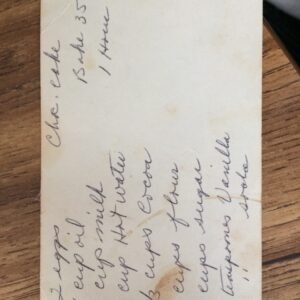 Choc. cake
Bake 35
1 Hour
2 eggs
cup oil
cup milk
cup Hot water
cups Cocoa
cups flour
cups sugar
Teaspoons Vanilla
" Soda